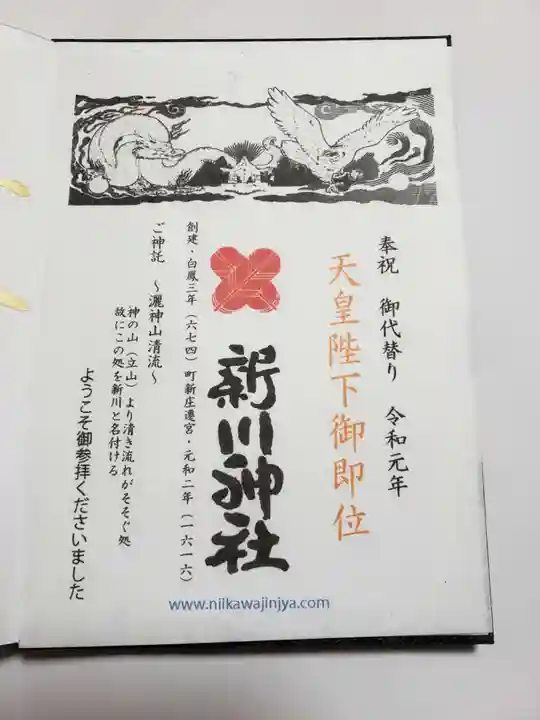 奉祝 御代替り 令和元年
天皇陛下御即位
新川神社
創建・白鳳三年(六七四)町新庄遷宮・元和二年(一六一六)
ご神託 〜灑神山清流〜
神の山(立山)より清き流れがそそぐ処
故にこの処を新川と名付ける
ようこそ御参拝くださいました
www.niikawajinjya.com